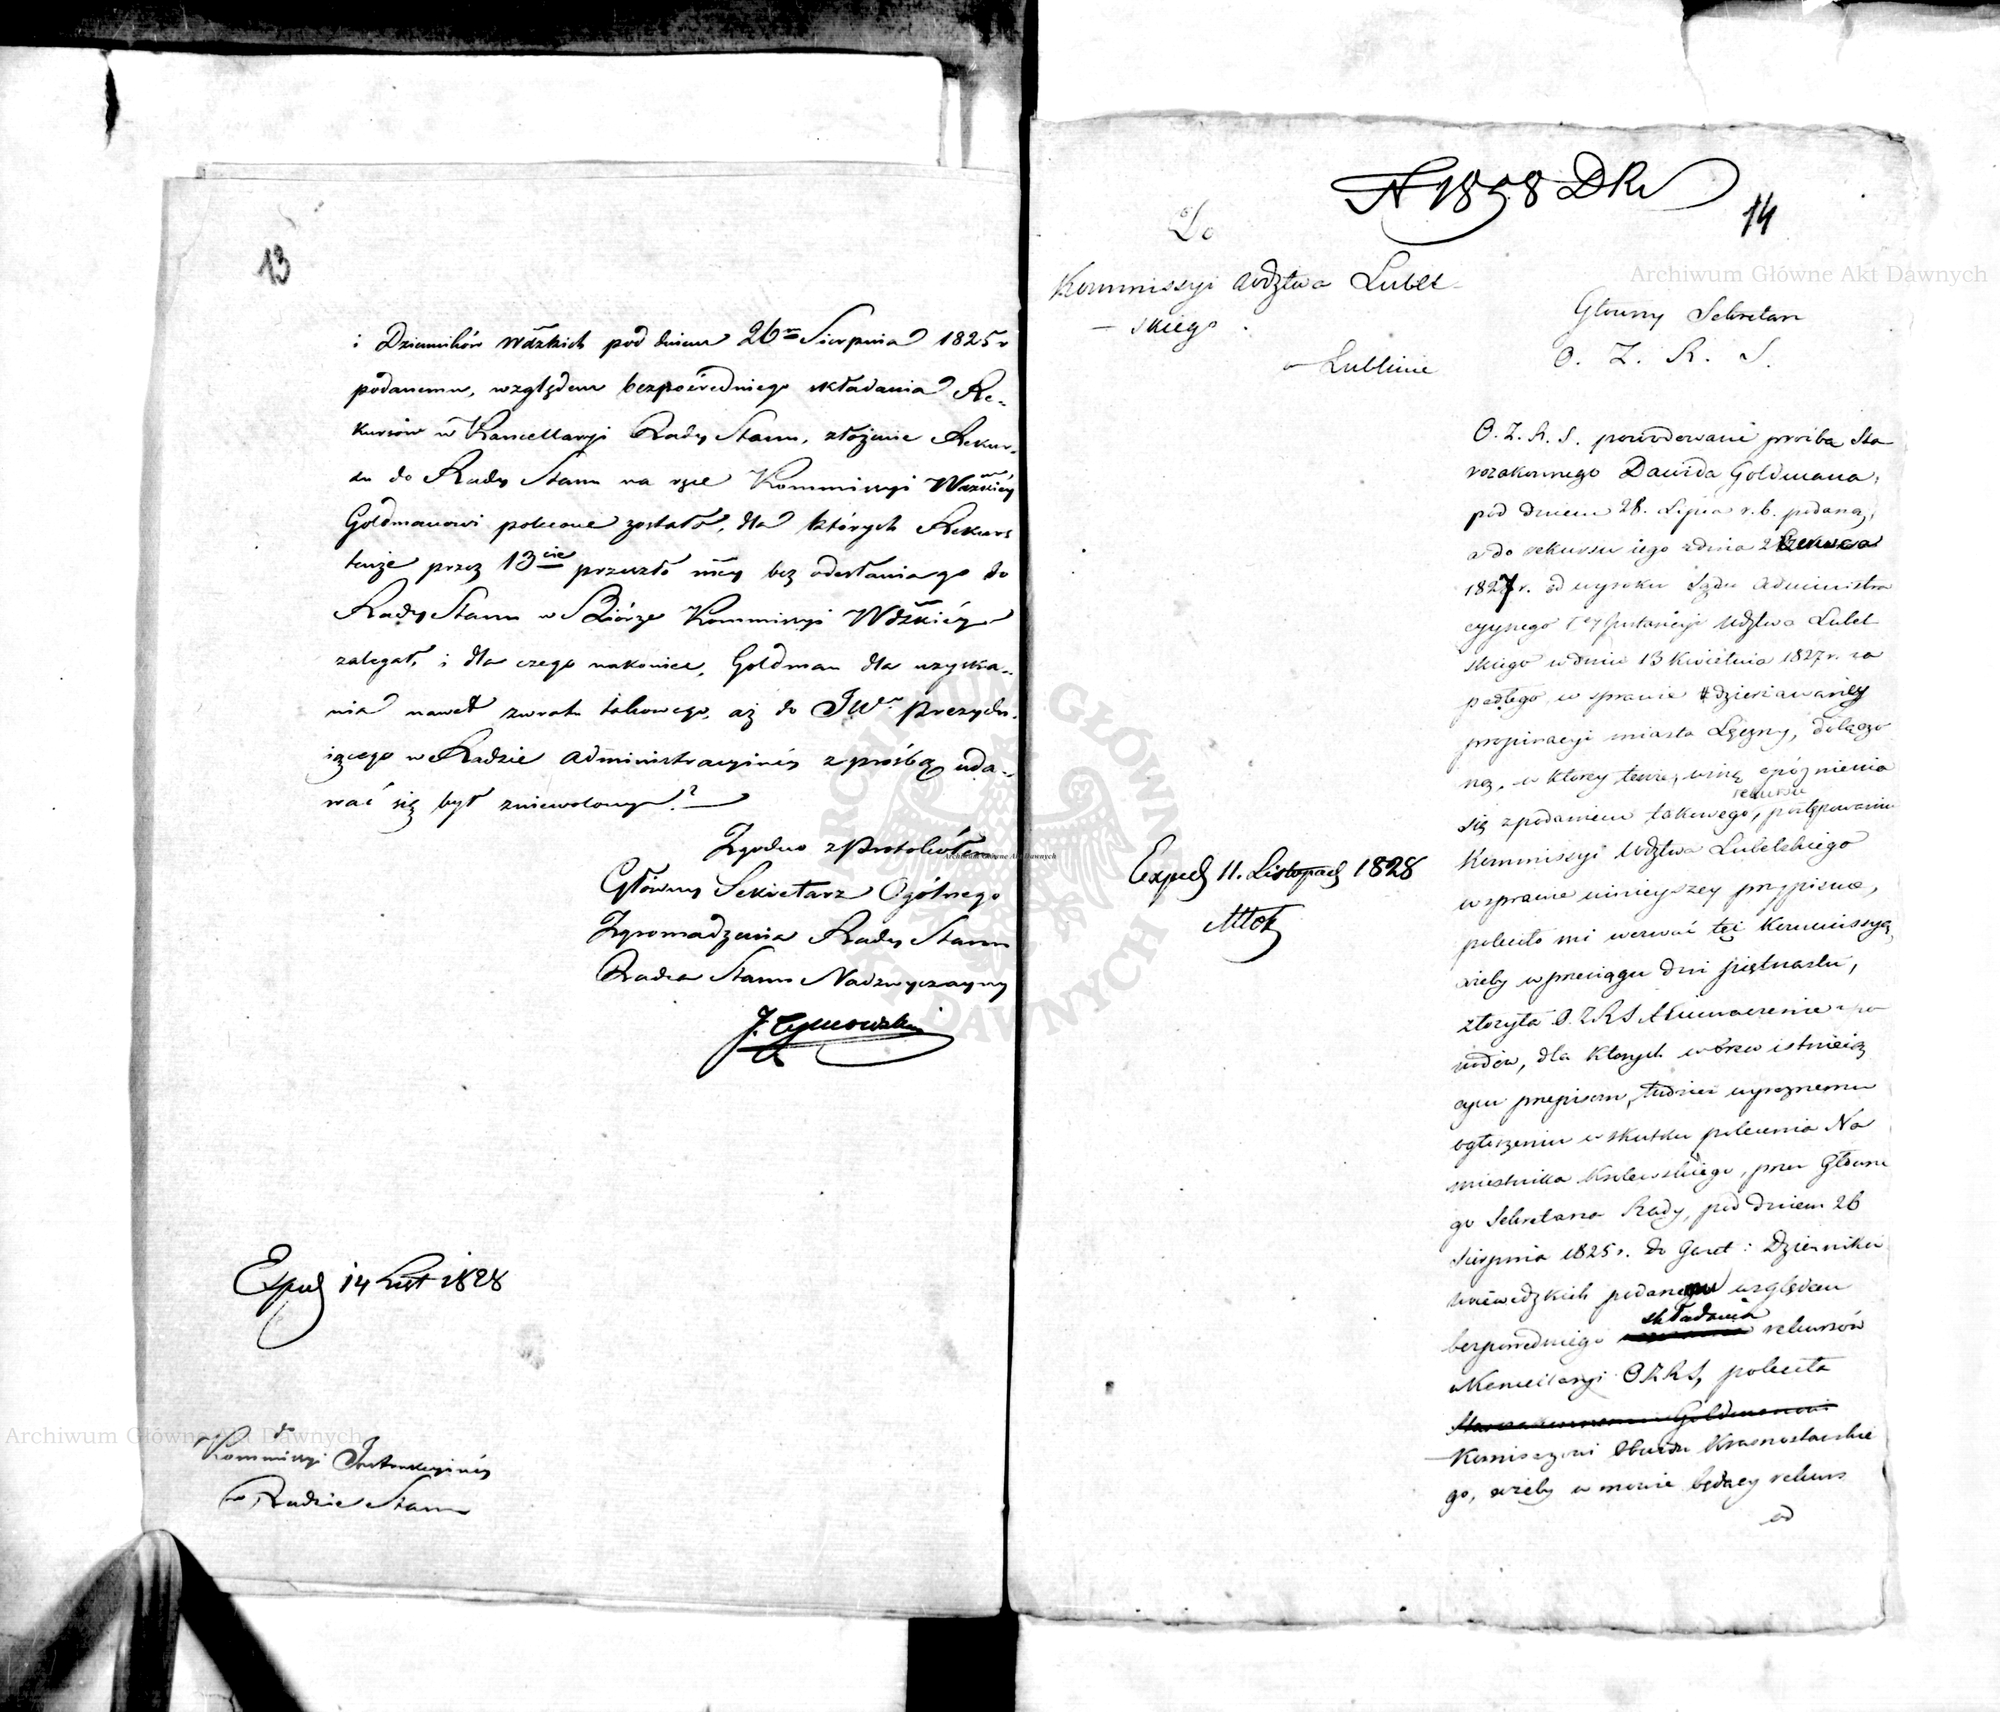 13
i Dzienników Wdzkich pod dniem 26m Sierpnia 1825 r
podanemu, względem bezpośredniego składania Re-
kursów w Kancellaryi Rady Stanu, złożenie Rekur-
su do Rady Stanu na ręce Kommissyi Wdzkiéy
Goldmanowi polecone zostało, dla których Rekurs
tenże przez 13cie przeszło mcy bez odesłania go do
Rady Stanu w Biórze Kommissyi Wdzkiéy
zalegał, i dla czego nakoniec, Goldman dla uzyska-
nia nawet zwrotu takowego, aż do JW. Prezydu-
iącego w Radzie Administracyinéy z prośbą uda-
wać się był zniewolony?
Zgodno z Protokółem
Główny Sekretarz Ogólnego
Zgromadzenia Rady Stanu
Radca Stanu Nadzwyczayny
J. Tymowski
Exped 14 List 1828
do
Kommissyi Instrukcyinéy
w Radzie Stanu
N 1858 DRs
14
Do
Kommissyi Wdztwa Lubel-
skiego
w Lublinie
Główny Sekretarz
O. Z. R. S.
O. Z. R. S. powodowane prośbą Sta
rozakonnego Dawida Goldmana,
pod dniem 28. Lipca r. b. podaną,
a do rekursu iego z dnia 2 Czerwca
1827 r. od wyroku Sądu Administra
cyynego Iey Instancyi Wdztwa Lubel
skiego w dniu 13 Kwietnia 1827 r. za
padłego, w sprawie dzierżawney
propinacyi miasta Łęczny, dołączo
ną, w ktorey tenże, winę opóźnienia
się z podaniem takowego rekursu, postępowaniu
Kommissyi Wdztwa Lubelskiego
w sprawie ninieyszey przypisuie,
poleciło mi wezwać też Kommissyą,
ażeby w przeciągu dni piętnastu,
złożyła O.Z.R.S. tłumaczenie z po
wodów, dla ktorych wbrew istnieią
cym przepisom, tudzież wyraźnemu
ogłoszeniu w skutku polecenia Na
miestnika Krolewskiego, przez Główne
go Sekretarza Rady, pod dniem 26
Sierpnia 1825 r. do Gazet i Dzienników
woiewodzkich podanemu względem
bezpośredniego składania rekursów
w Kancellaryi O.Z.R.S, poleciła
Starozakonnemu Goldmanowi
Kommissarzowi Obwodu Krasnostawskie
go, ażeby w mowie będący rekurs
od
Exped 11. Listopad 1828
Archiwum Główne Akt Dawnych
Archiwum Główne Akt Dawnych
Archiwum Główne Akt Dawnych
ARCHIWUM GŁÓWNE AKT DAWNYCH